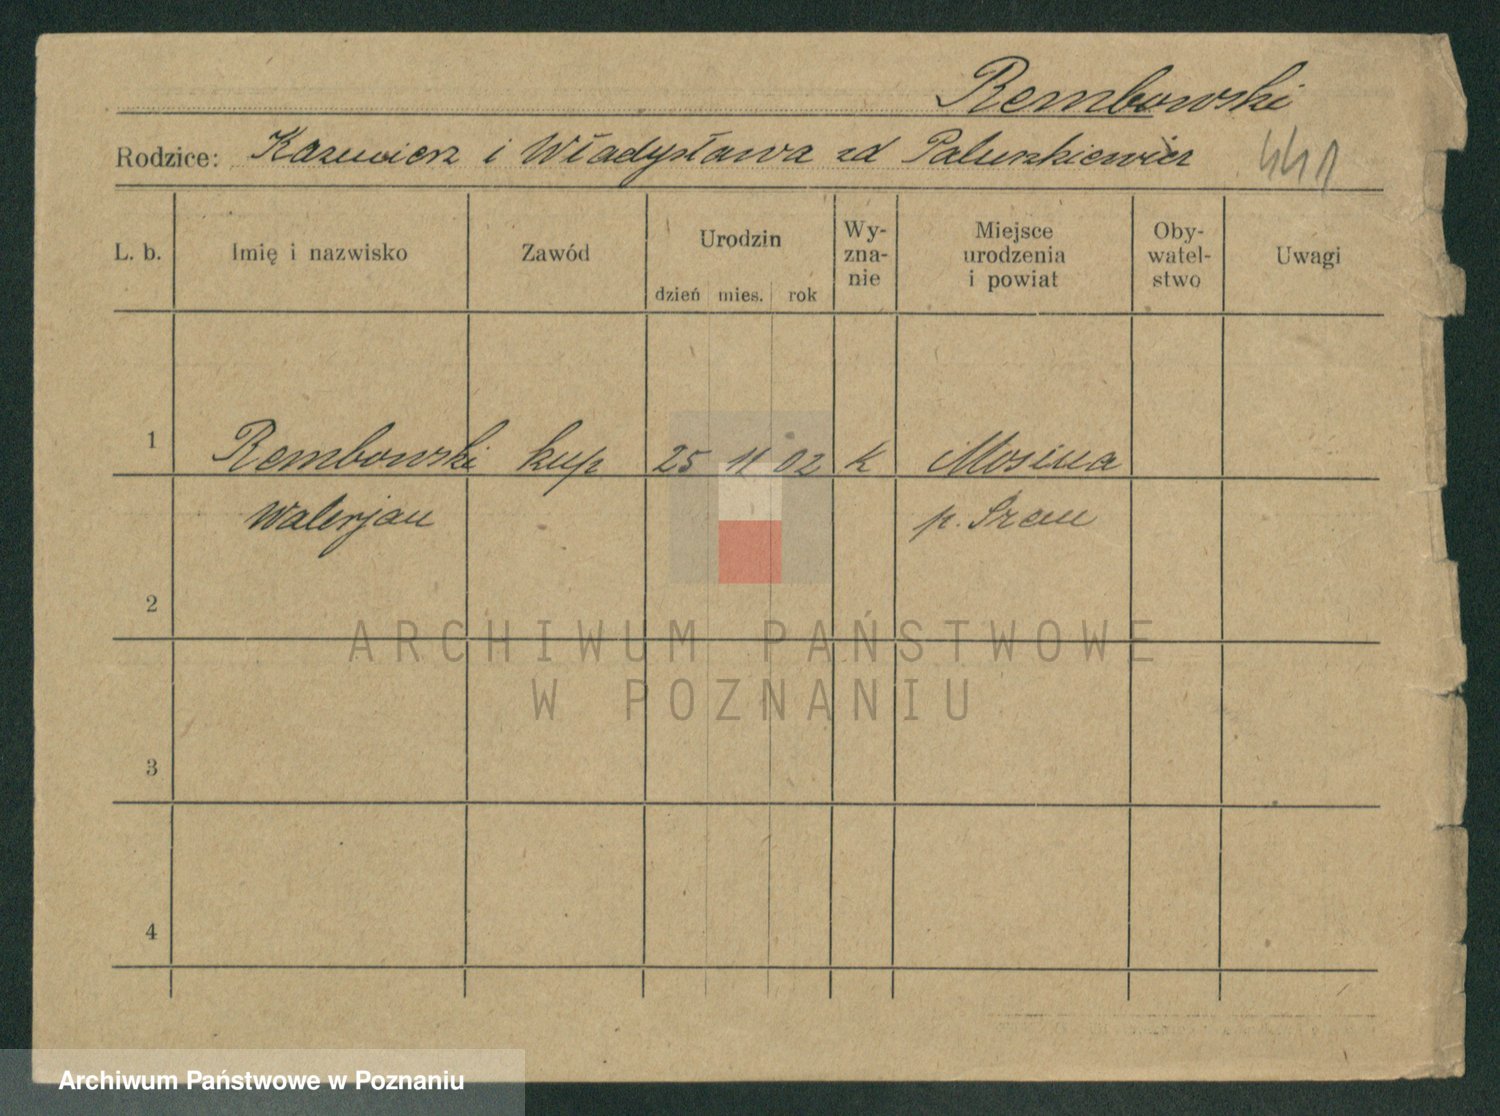 Rembowski
Rodzice: Kazimierz i Władysława zd Paluszkiewicz 441
L. b. Imię i nazwisko Zawód Urodzin dzień mies. rok Wy-zna-nie Miejsce urodzenia i powiat Oby-watel-stwo Uwagi
1 Rembowski kup 25 11 02 k Mosina
Walerjan p. Śrem
2
ARCHIWUM PAŃSTWOWE
W POZNANIU
3
4
Archiwum Państwowe w Poznaniu